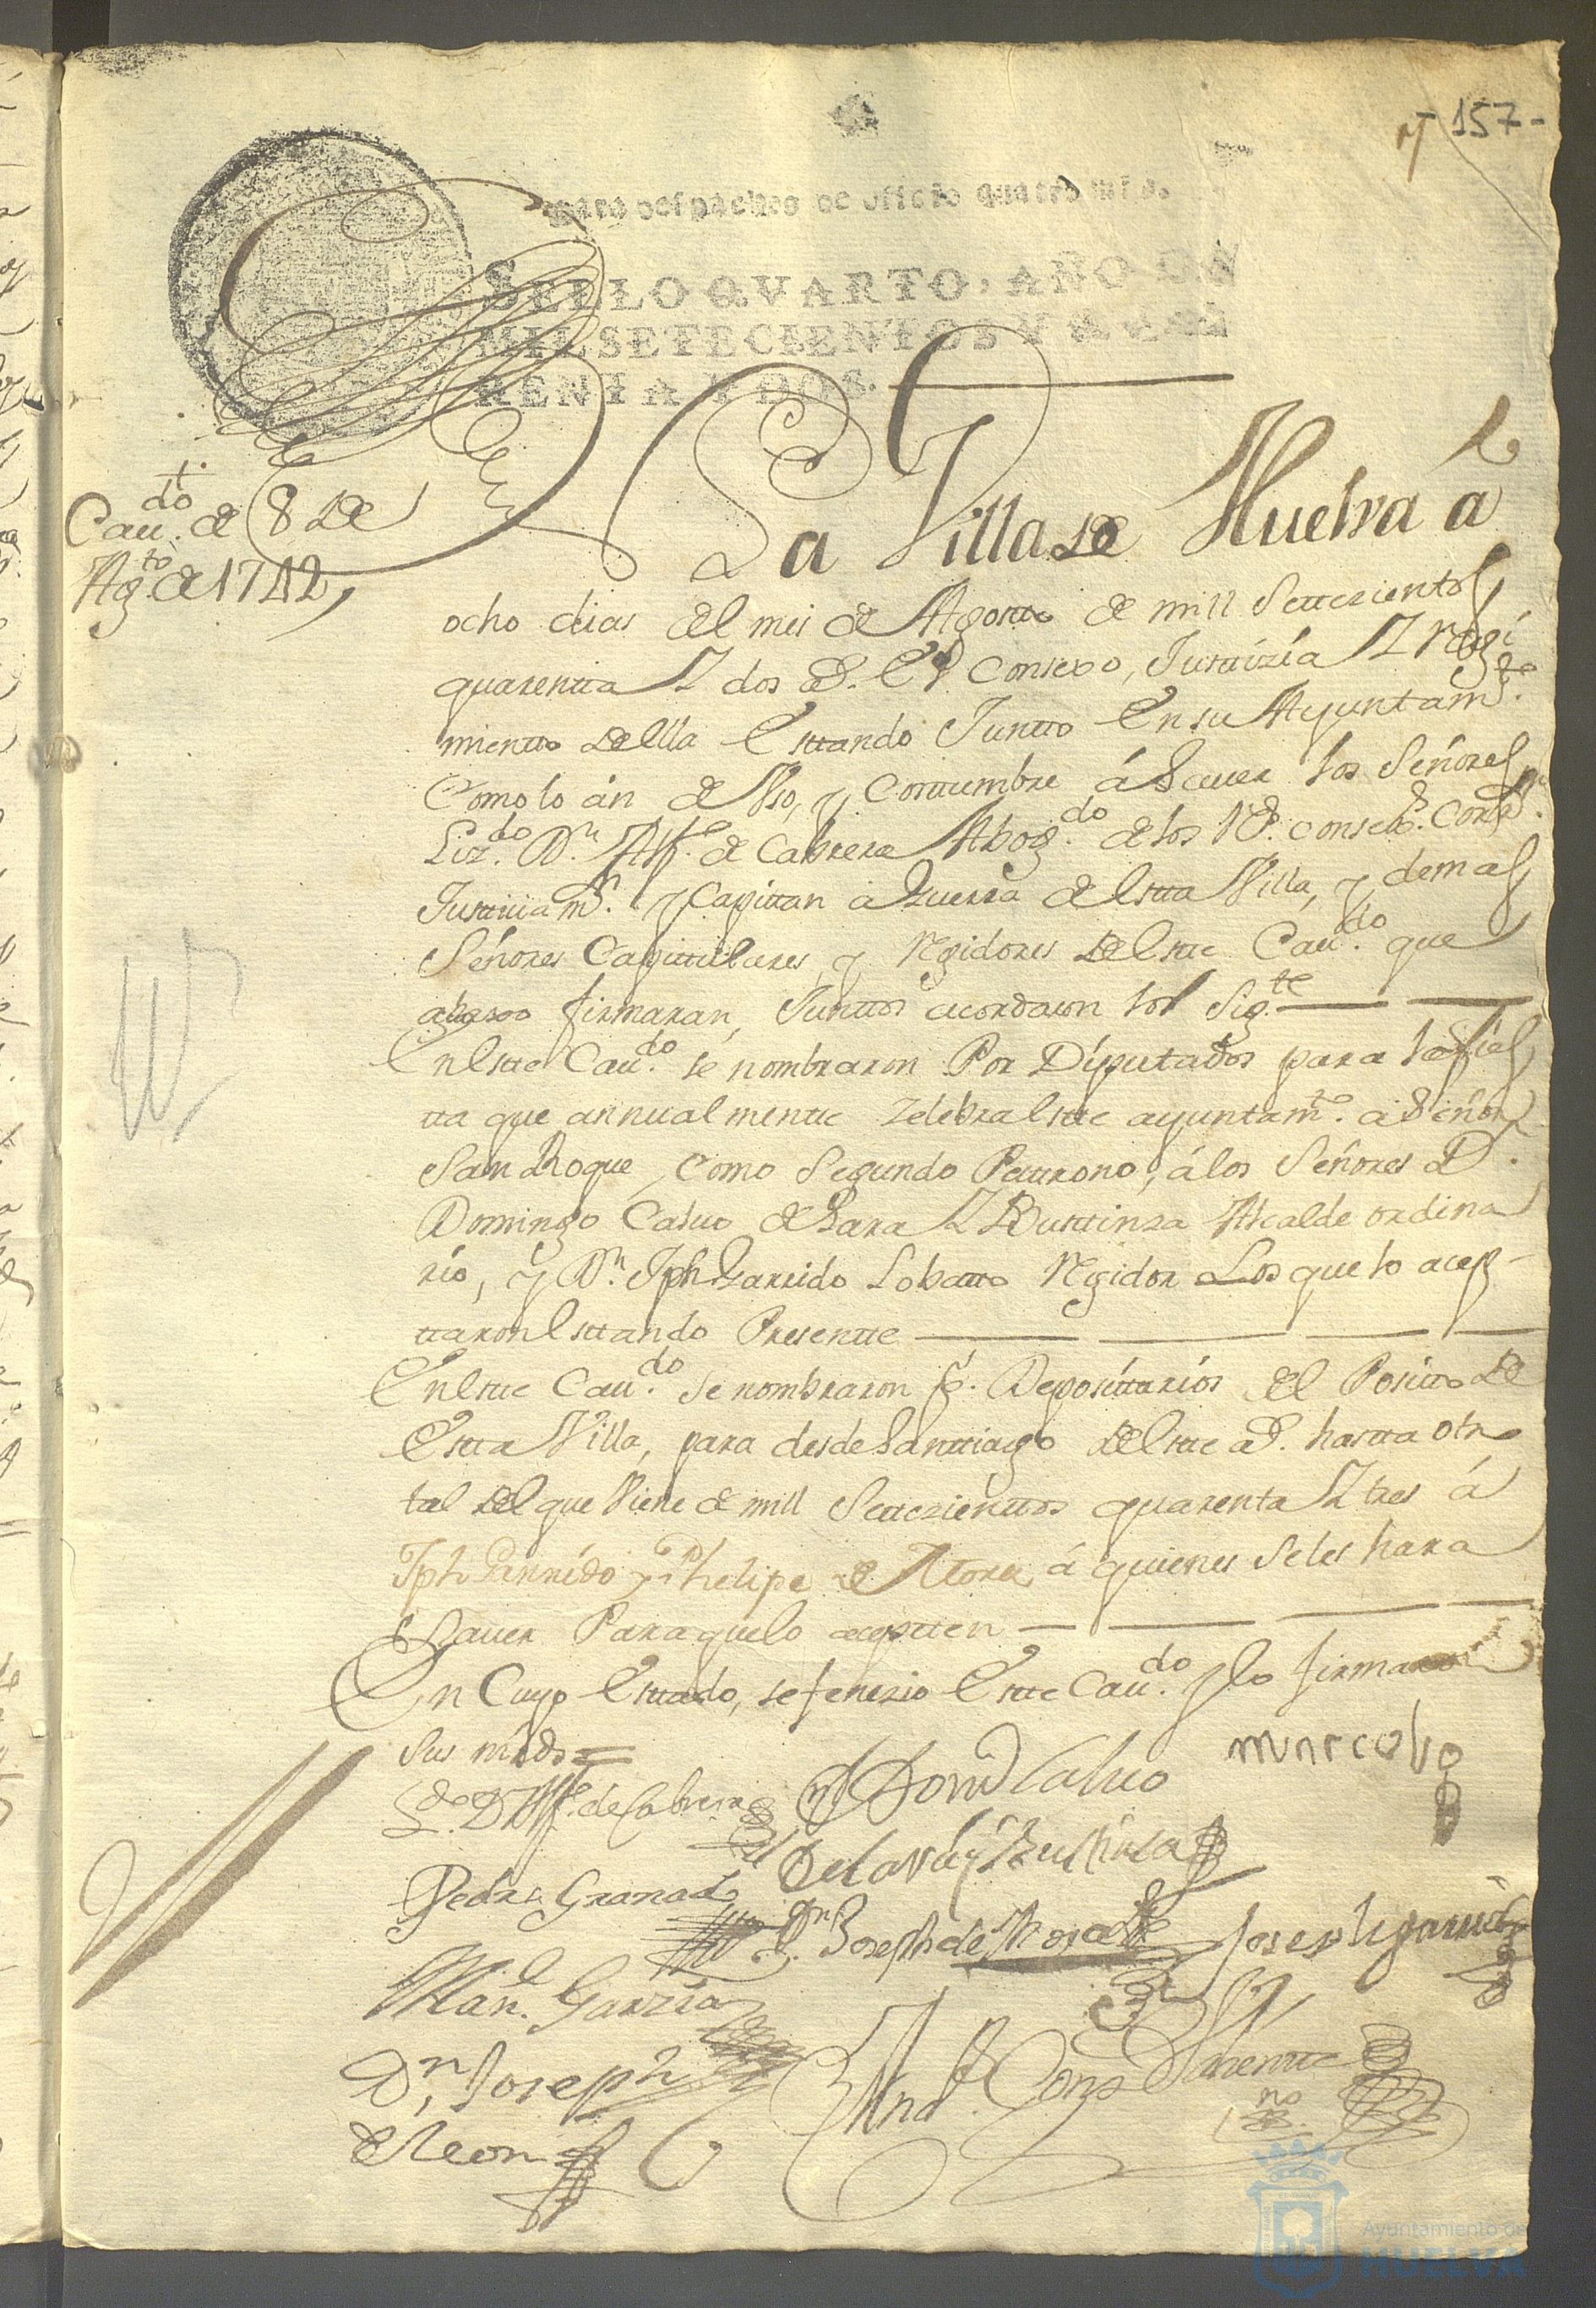 157-
para despachos de officio quatro mrs.
SELLO QVARTO, AÑO DE
MIL SETECIENTOS Y QVA
RENTA Y DOS.
Cau.do de 8 de
Ag.to de 1742
En La Villa de Huelva á
ocho dias del mes de Agosto de mill Settezientos
quarentta Y dos a.s El Consexo, Justtizia Y regi
mientto de ella Esttando Juntto En su Ayuntam.to
Como lo án de Vso, y Costtumbre á Sauer los Señores
Liz.do D.n Alf.o de Cabrera Abog.do de los R.s Consexo.s Corr.or
Justtizia m.r y Capittan a Guerra de estta Villa, y demas
Señores Capittulares, y Rexidores de estte Cau.do que
abaxo firmaran, Junttos acordaron los Sig.te
En estte Cau.do se nombraron Por Diputados para la fies
tta que annualmentte Zelebra estte ayuntam.to a Señor
San Roque, como Segundo Pattrono, á los Señores D.n
Domingo Caluo de Lara Y Busttinza Alcalde ordina
rio, y D.n Jph Garrido Lobatto Rexidor Los que lo acep
ttaron esttando Presentte
En estte Cau.do se nombraron p.r Deposittarios del Positto de
Estta Villa, para desde Santtiago de estte a.o hastta otro
tal del que Viene de mill Settezienttos quarenta Y tres á
Jph Garrido y Phelipe de Mora á quienes se les hara
Sauer Para que lo aceptten
En Cuyo Esttado, se fenezio Estte Cau.do y lo firmaron
sus mrds =
L.do D. Alf.o de Cabrera
D.n Dom.o Caluo
De Lara y Bustinza
Pedro Granado
D.n Joseph de
Joseph garrido
Man.l Garzia
D.n Joseph
de Leon
Ant.